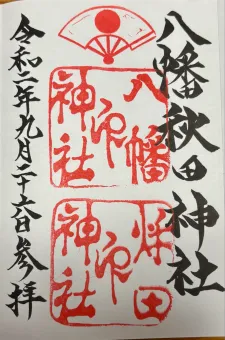 八幡秋田神社
八幡神社之印
秋田神社之印
令和二年九月二十六日参拝